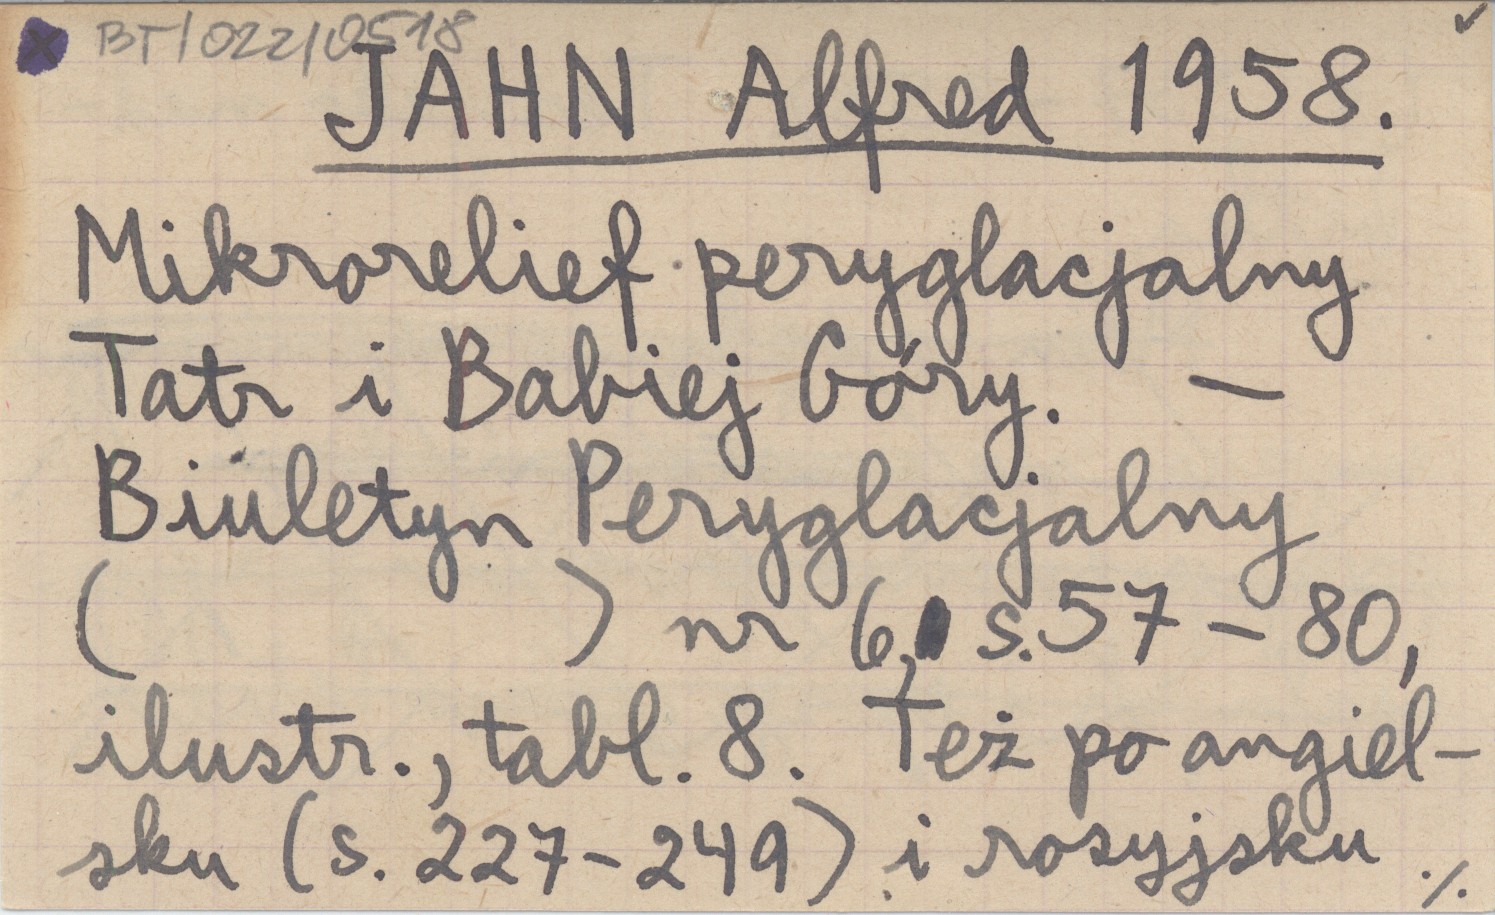 BT/022/0518
JAHN Alfred 1958.
Mikrorelief peryglacjalny
Tatr i Babiej Góry. —
Biuletyn Peryglacjalny
( ) nr 6, s. 57 - 80,
ilustr., tabl. 8. Też po angiel-
sku (s. 227-249) i rosyjsku ./.